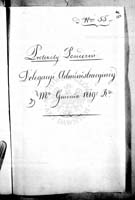 Nro 55.
Protokóły Posiedzeń
Delegacyi Administracyjney
Mca Grudnia 1819 Ro